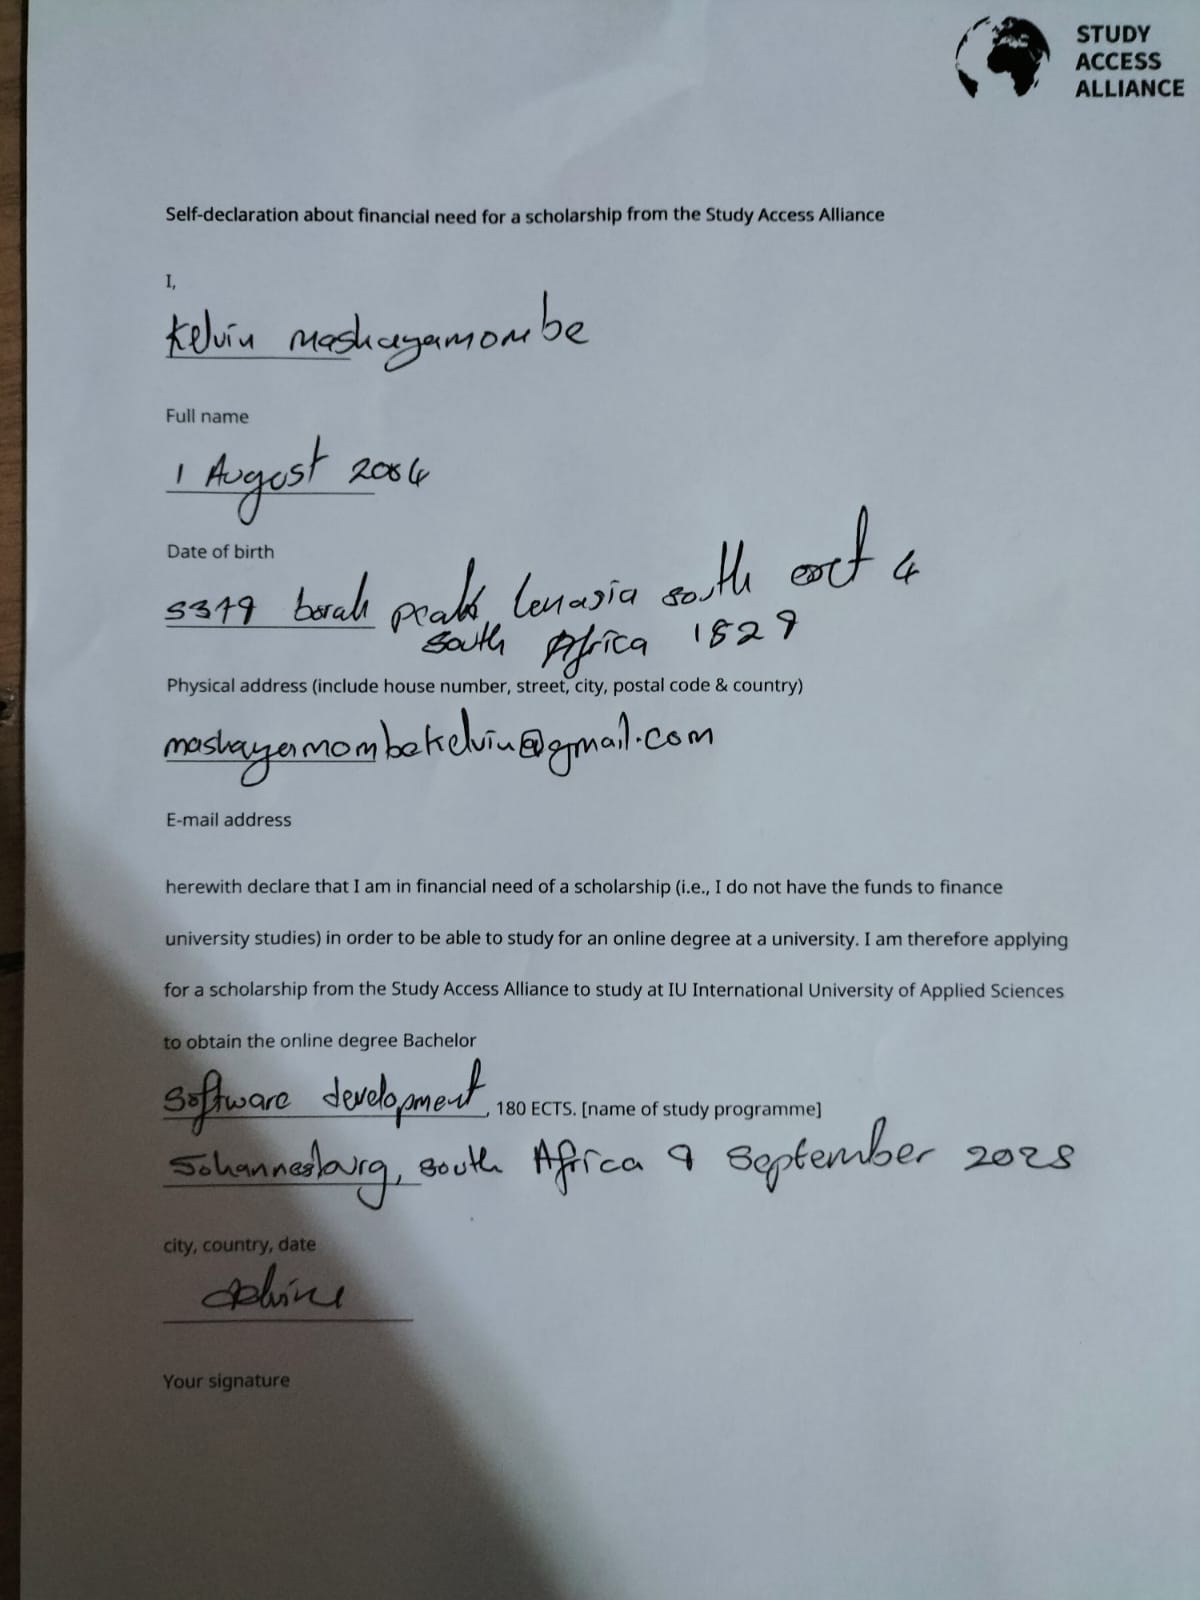 STUDY
ACCESS
ALLIANCE
Self-declaration about financial need for a scholarship from the Study Access Alliance
I,
Kelvin mashayamombe
Full name
1 August 2004
Date of birth
5379 borah peak, lenasia south ext 4
South Africa 1829
Physical address (include house number, street, city, postal code & country)
mashayamombekelvin@gmail.com
E-mail address
herewith declare that I am in financial need of a scholarship (i.e., I do not have the funds to finance
university studies) in order to be able to study for an online degree at a university. I am therefore applying
for a scholarship from the Study Access Alliance to study at IU International University of Applied Sciences
to obtain the online degree Bachelor
Software development, 180 ECTS. [name of study programme]
Johannesburg, South Africa 9 September 2025
city, country, date
Your signature